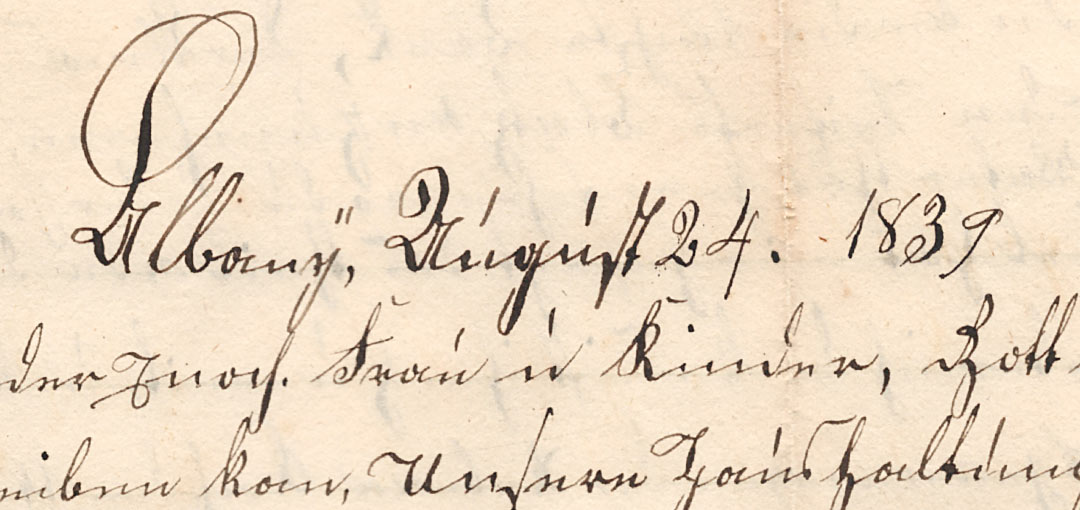 Albanÿ, August 24. 1839
der Enoch. Frau u Kinder, Gott
eiben kan, Unsere Haushaltung